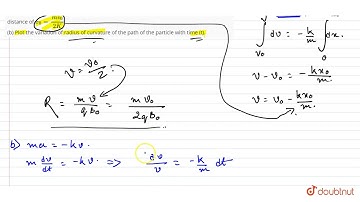 distance of x₀ = mv₀/2k
(b) Plot the variation of radius of curvature of the path of the particle with time (t).
∫_{v₀}^{v} dv = -k/m ∫_{0} dx.
v = v₀/2.
v - v₀ = -kx₀/m.
R = mv/qB₀ = mv₀/2qB₀
v = v₀ - kx₀/m.
b) ma = -kv.
m dv/dt = -kv. => dv/v = -k/m dt
doubtnut